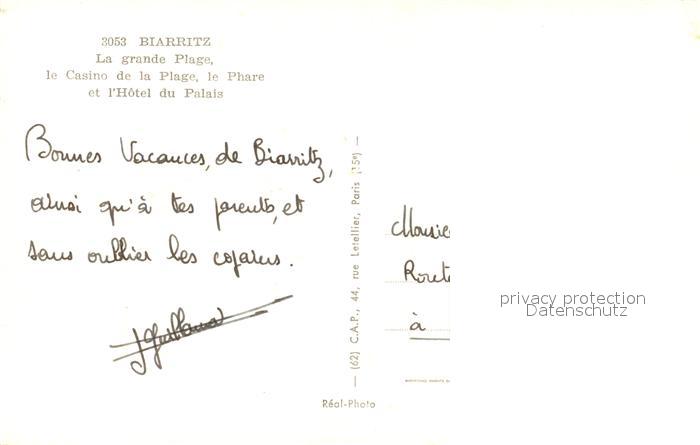 3053 BIARRITZ
La grande Plage,
le Casino de la Plage, le Phare
et l'Hôtel du Palais
Bonnes Vacances, de Biarritz,
ainsi qu'à tes parents, et
sans oublier les copains.
— (62) C.A.P., 44, rue Letellier, Paris (15e) —
Réal-Photo
Monsie
Route
à
privacy protection
Datenschutz